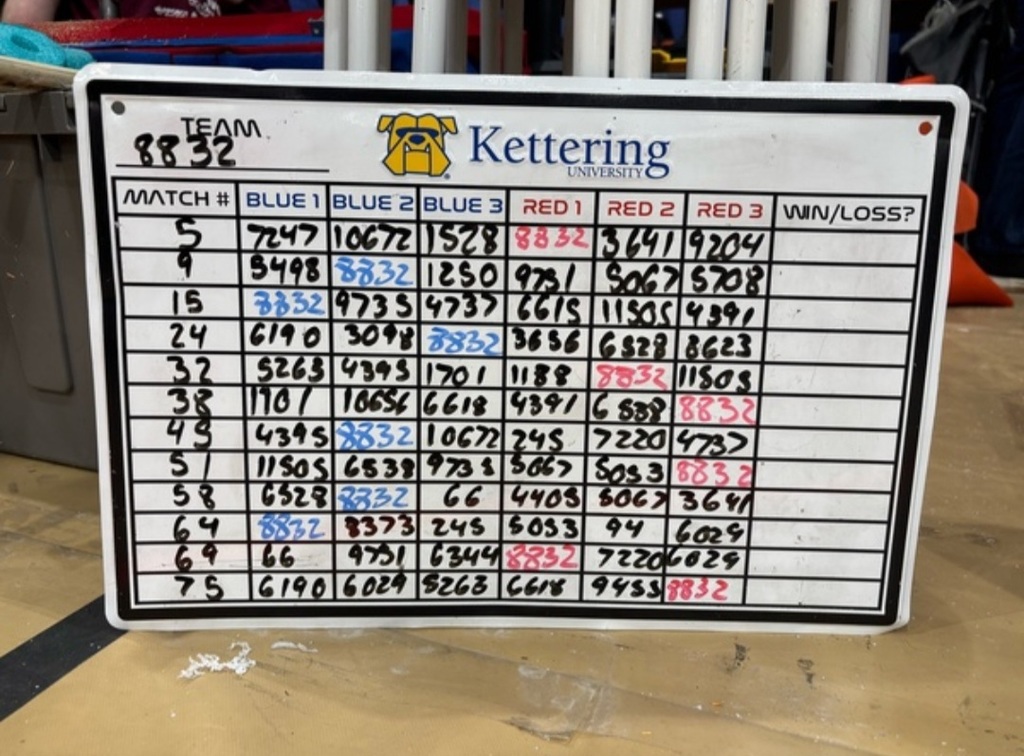 TEAM
8832
Kettering
UNIVERSITY
MATCH # BLUE 1 BLUE 2 BLUE 3 RED 1 RED 2 RED 3 WIN/LOSS?
5 7247 10672 1528 8832 3641 9204
9 5498 8832 1250 9751 5067 5708
15 8832 9735 4737 6615 11505 4391
24 6190 3098 8832 3656 6528 8623
32 5263 4395 1701 1188 8832 11505
38 1701 10656 6618 4391 6538 8832
45 4395 8832 10672 245 7220 4737
51 11505 6538 9735 5067 5053 8832
58 6528 8832 66 4405 5067 3641
64 8832 8373 245 5053 94 6029
69 66 9751 6344 8832 7220 6029
75 6190 6029 5263 6618 9455 8832